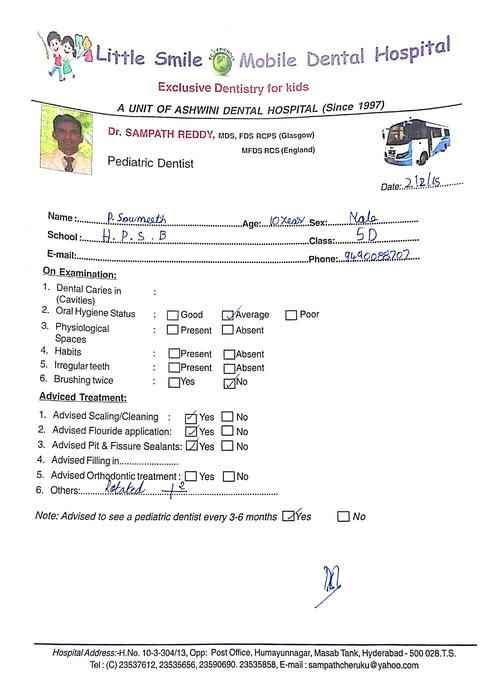 Little Smile Mobile Dental Hospital
Exclusive Dentistry for kids
A UNIT OF ASHWINI DENTAL HOSPITAL (Since 1997)
Dr. SAMPATH REDDY, MDS, FDS RCPS (Glasgow)
MFDS RCS (England)
Pediatric Dentist
Date: 2/2/15
Name: P. Soumeeth Age: 10 Year Sex: Male
School: H. P. S. B Class: 5 D
E-mail: Phone: 9490088707
On Examination:
1. Dental Caries in :
(Cavities)
2. Oral Hygiene Status : Good Average Poor
3. Physiological : Present Absent
Spaces
4. Habits : Present Absent
5. Irregular teeth : Present Absent
6. Brushing twice : Yes No
Adviced Treatment:
1. Advised Scaling/Cleaning : Yes No
2. Advised Flouride application: Yes No
3. Advised Pit & Fissure Sealants: Yes No
4. Advised Filling in....................
5. Advised Orthodontic treatment : Yes No
6. Others: Rotated
Note: Advised to see a pediatric dentist every 3-6 months Yes No
Hospital Address:-H.No. 10-3-304/13, Opp: Post Office, Humayunnagar, Masab Tank, Hyderabad - 500 028.T.S.
Tel : (C) 23537612, 23535656, 23590690. 23535858, E-mail : sampathcheruku@yahoo.com